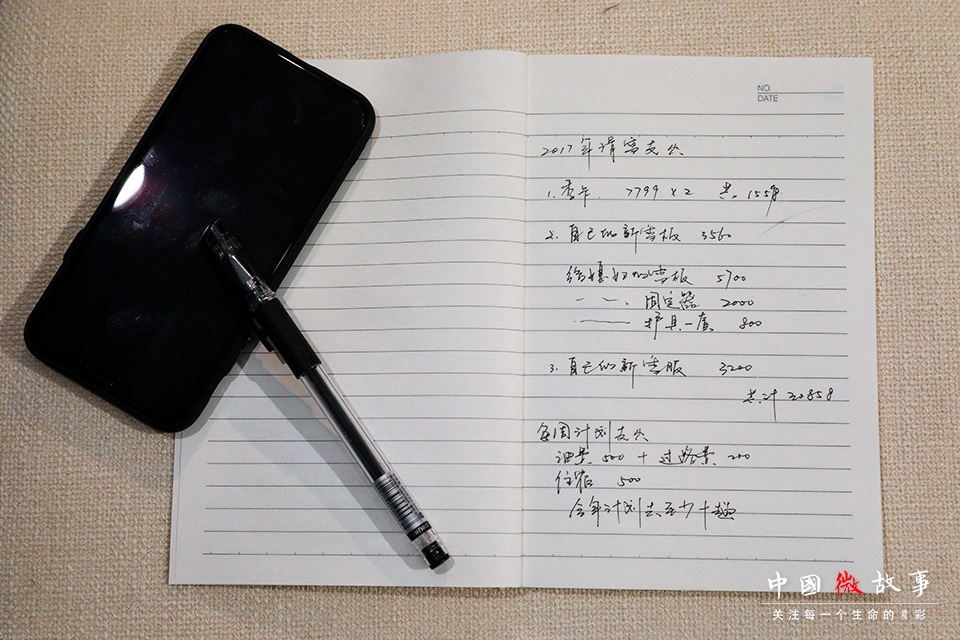 NO.
DATE
2017年滑雪支出
1.季卡. 7799×2 共.15598
2.自己的新雪板 3560
给媳妇的雪板 5700
一 一、固定器 2000
—— 护具一套 800
3.自己的新雪服 3200
共计 30858
每周计划支出
油费 500 + 过路费 200
住宿 500
今年计划去至少十趟
中國微故事
关注每一个生命的精彩